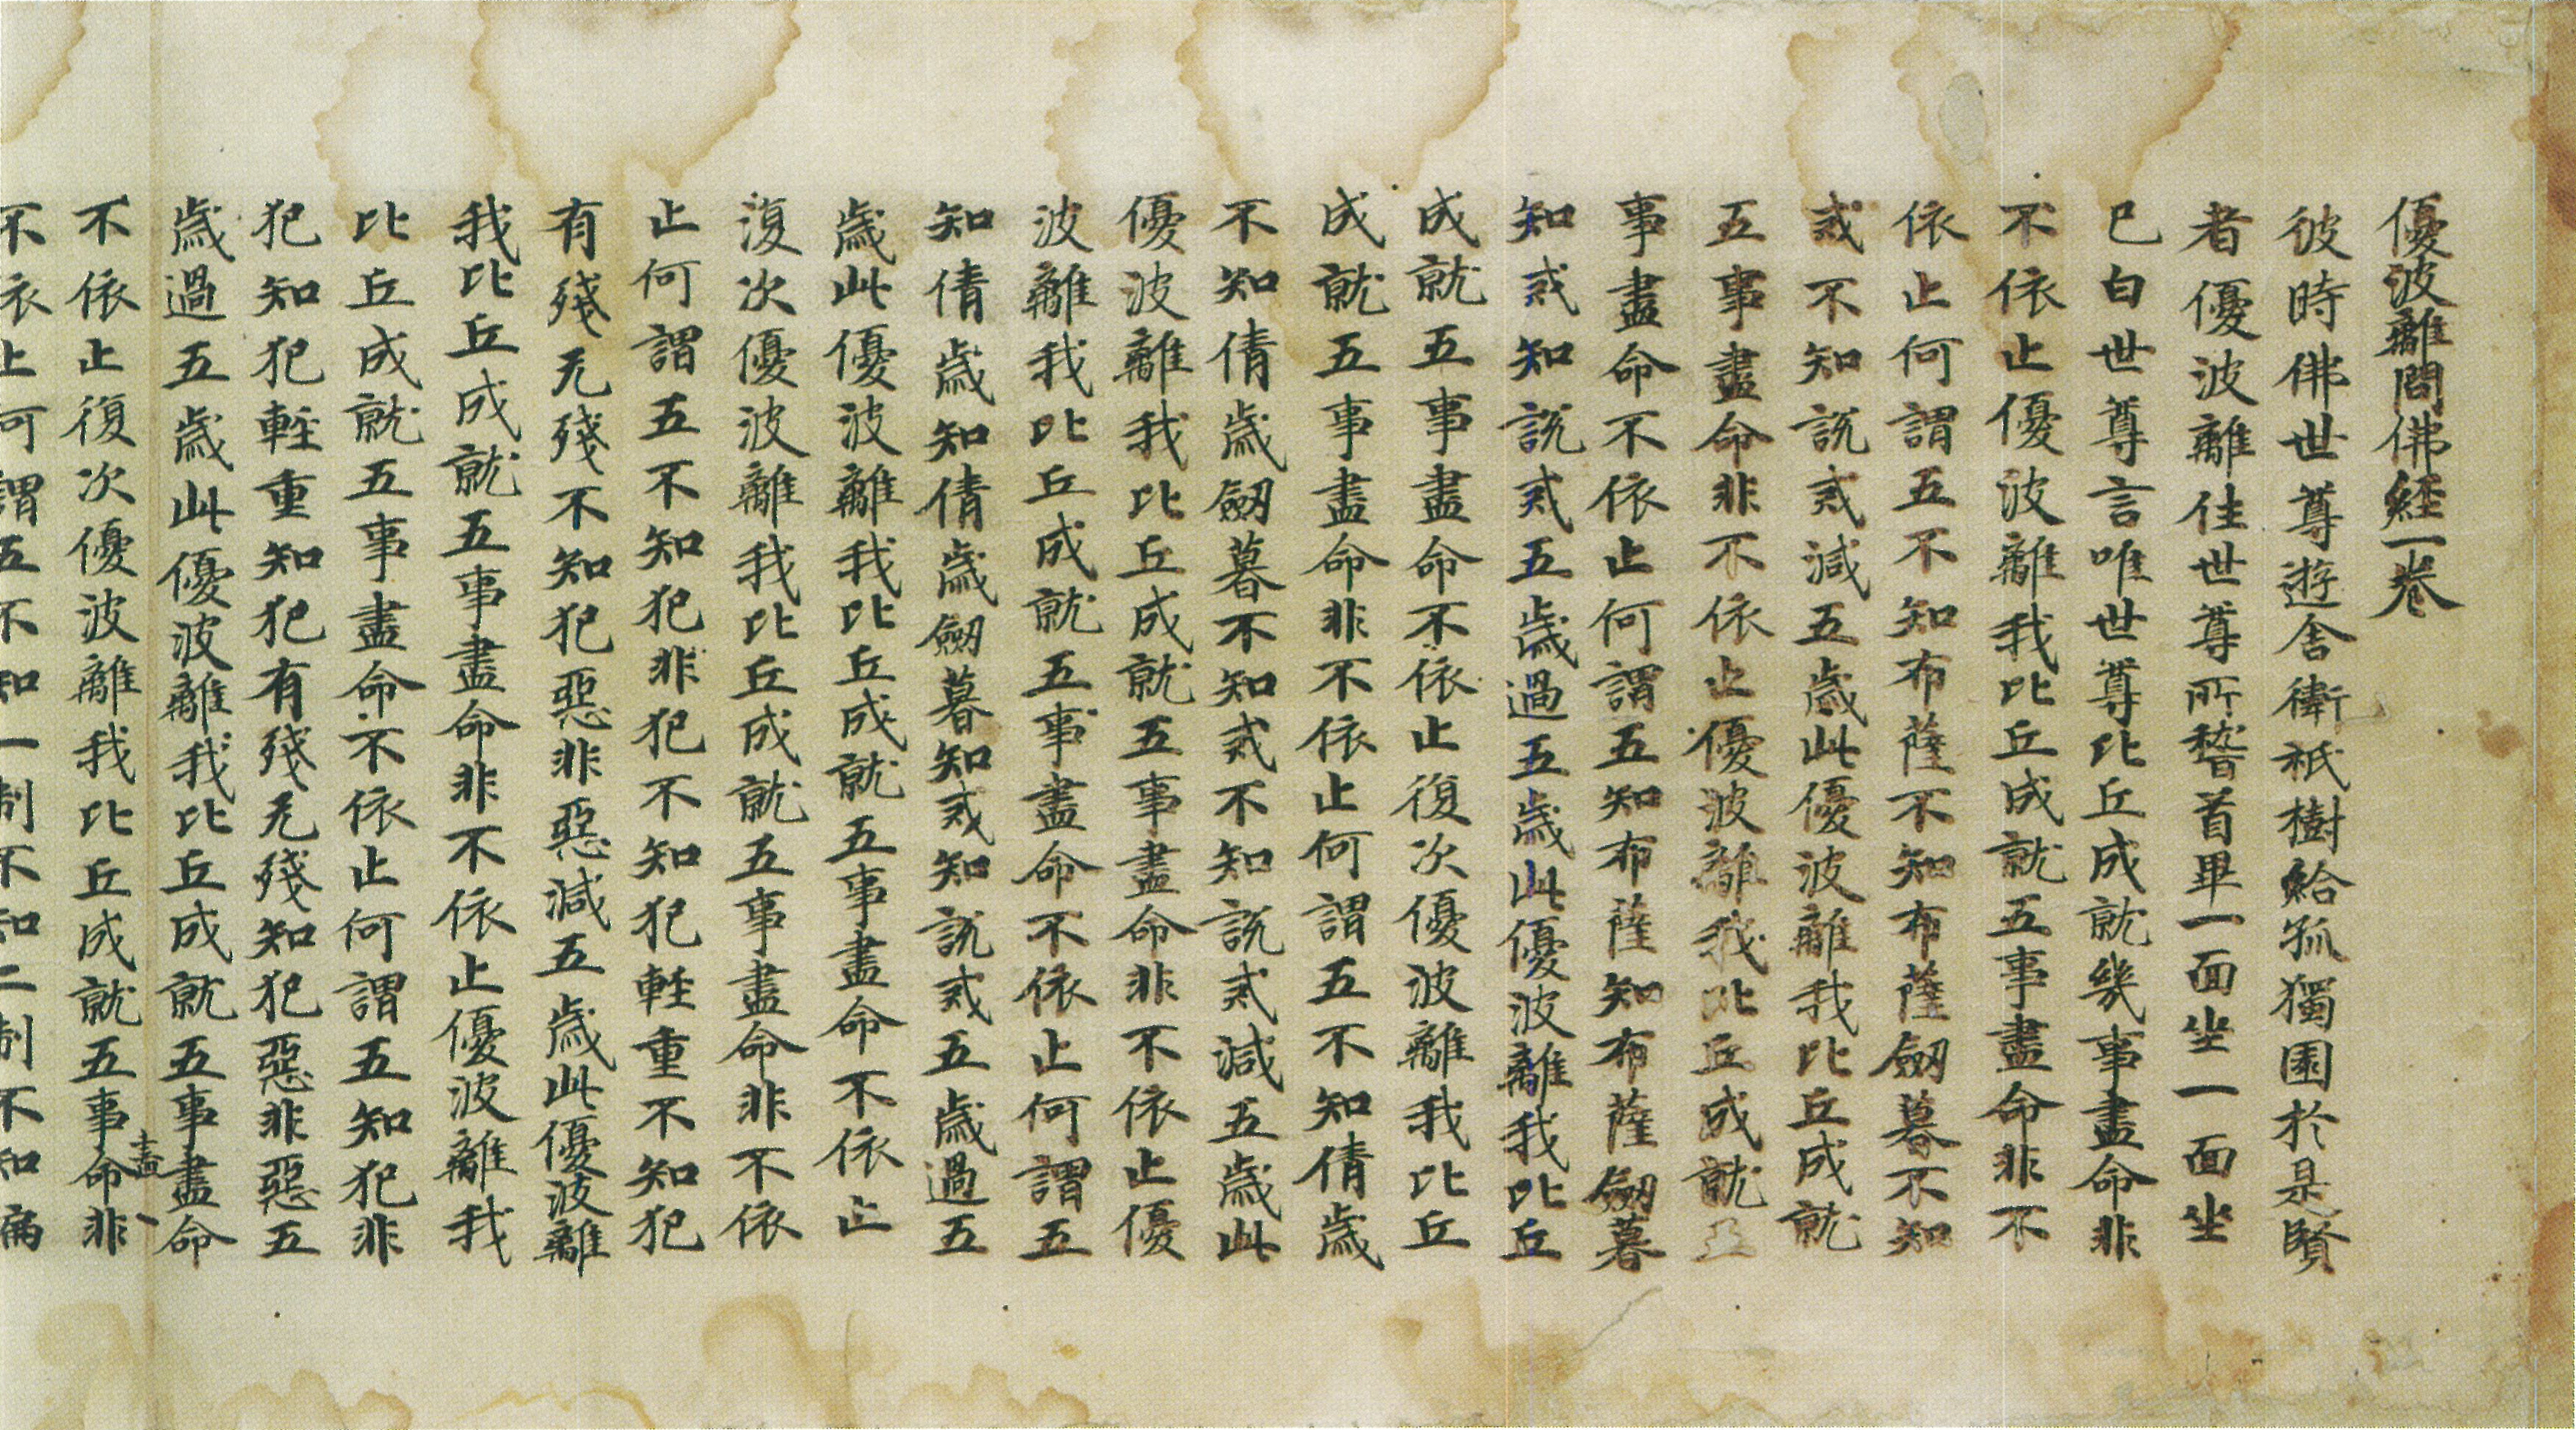 優波離問佛経一卷
彼時佛世尊遊舎衛祇樹給孤獨園於是賢
者優波離住世尊所稽首畢一面坐一面坐
已白世尊言唯世尊比丘成就幾事盡命非
不依止優波離我比丘成就五事盡命非不
依止何謂五不知布薩不知布薩劒暮不知
戒不知説戒減五歳此優波離我比丘成就
五事盡命非不依止優波離我比丘成就五
事盡命不依止何謂五知布薩知布薩劒暮
知戒知説戒五歳過五歳此優波離我比丘
成就五事盡命不依止復次優波離我比丘
成就五事盡命非不依止何謂五不知倩歳
不知倩歳劒暮不知戒不知説戒減五歳此
優波離我比丘成就五事盡命非不依止優
波離我比丘成就五事盡命不依止何謂五
知倩歳知倩歳劒暮知戒知説戒五歳過五
歳此優波離我比丘成就五事盡命不依止
復次優波離我比丘成就五事盡命非不依
止何謂五不知犯非犯不知犯輕重不知犯
有殘无殘不知犯惡非惡減五歳此優波離
我比丘成就五事盡命非不依止優波離我
比丘成就五事盡命不依止何謂五知犯非
犯知犯輊重知犯有殘无殘知犯惡非惡五
歳過五歳此優波離我比丘成就五事盡命
不依止復次優波離我比丘成就五事盡命非
不依止何謂五不知一制不知二制不知偏